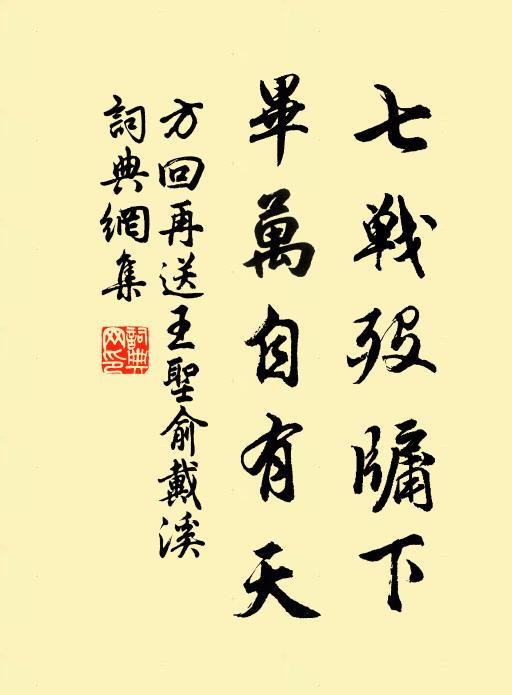 七戦歿牖下
畢萬自有天
方回再送王聖俞戴溪
詞典網集
詞典
网印